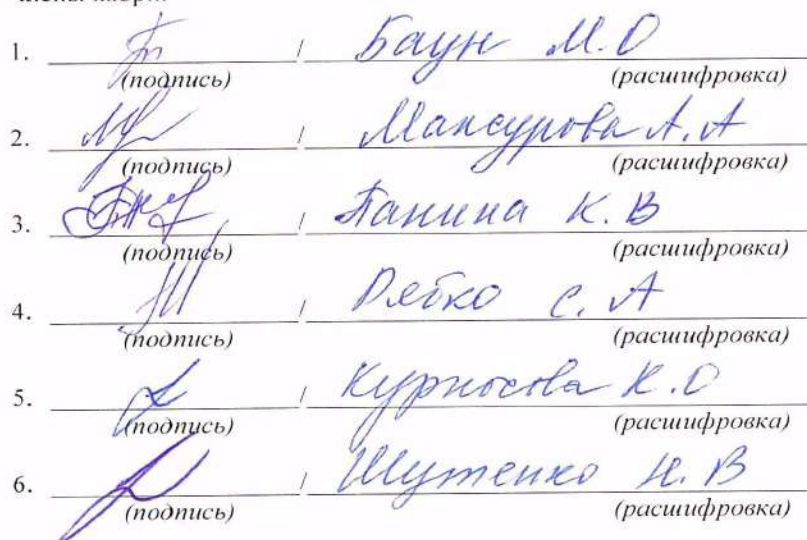 1. / Баун М.О
(подпись) (расшифровка)
2. / Мансурова А.А
(подпись) (расшифровка)
3. / Панина К.В
(подпись) (расшифровка)
4. / Рябко С.А
(подпись) (расшифровка)
5. / Курносова К.О
(подпись) (расшифровка)
6. / Шутенко Н.В
(подпись) (расшифровка)